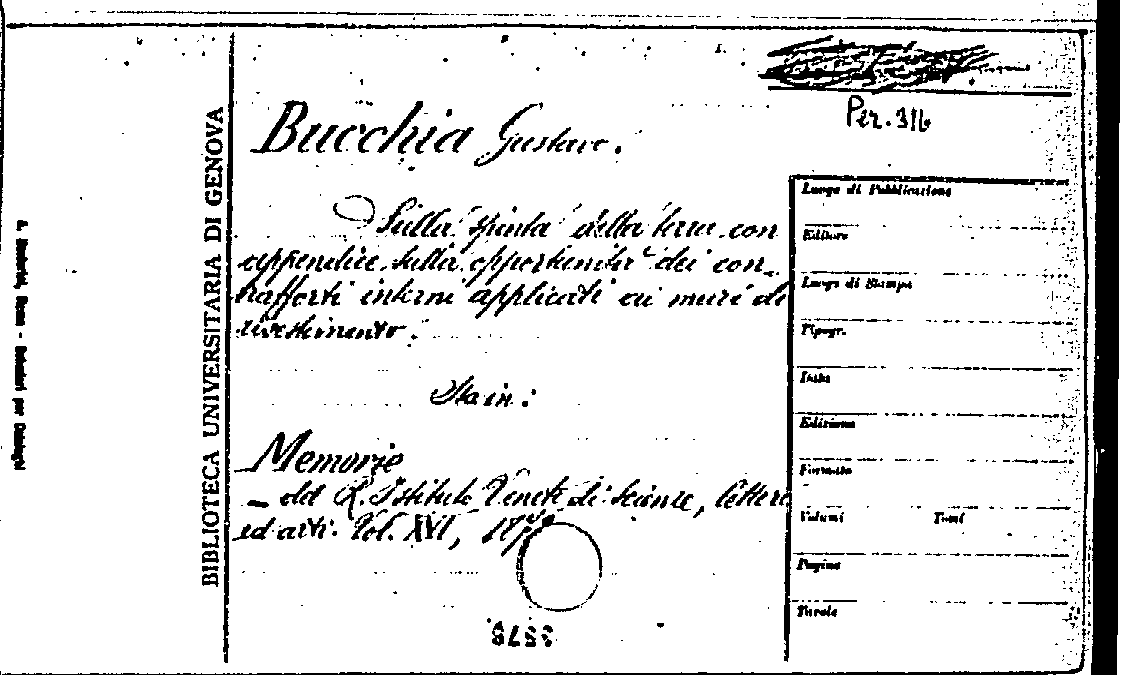 Per. 316
Bucchia Gustavo.
Sulla spinta della terra con
appendice sulla opportunità dei con-
trafforti interni applicati ai muri di
rivestimento.
Sta in:
Memorie
— del R. Istituto Veneto di scienze, lettere
ed arti. Vol. XVI, 18
3578
BIBLIOTECA UNIVERSITARIA DI GENOVA
Roma - Schedari per Cataloghi
Luogo di Pubblicazione
Editore
Luogo di Stampa
Tipogr.
Data
Edizione
Formato
Volumi Tomi
Pagine
Tavole